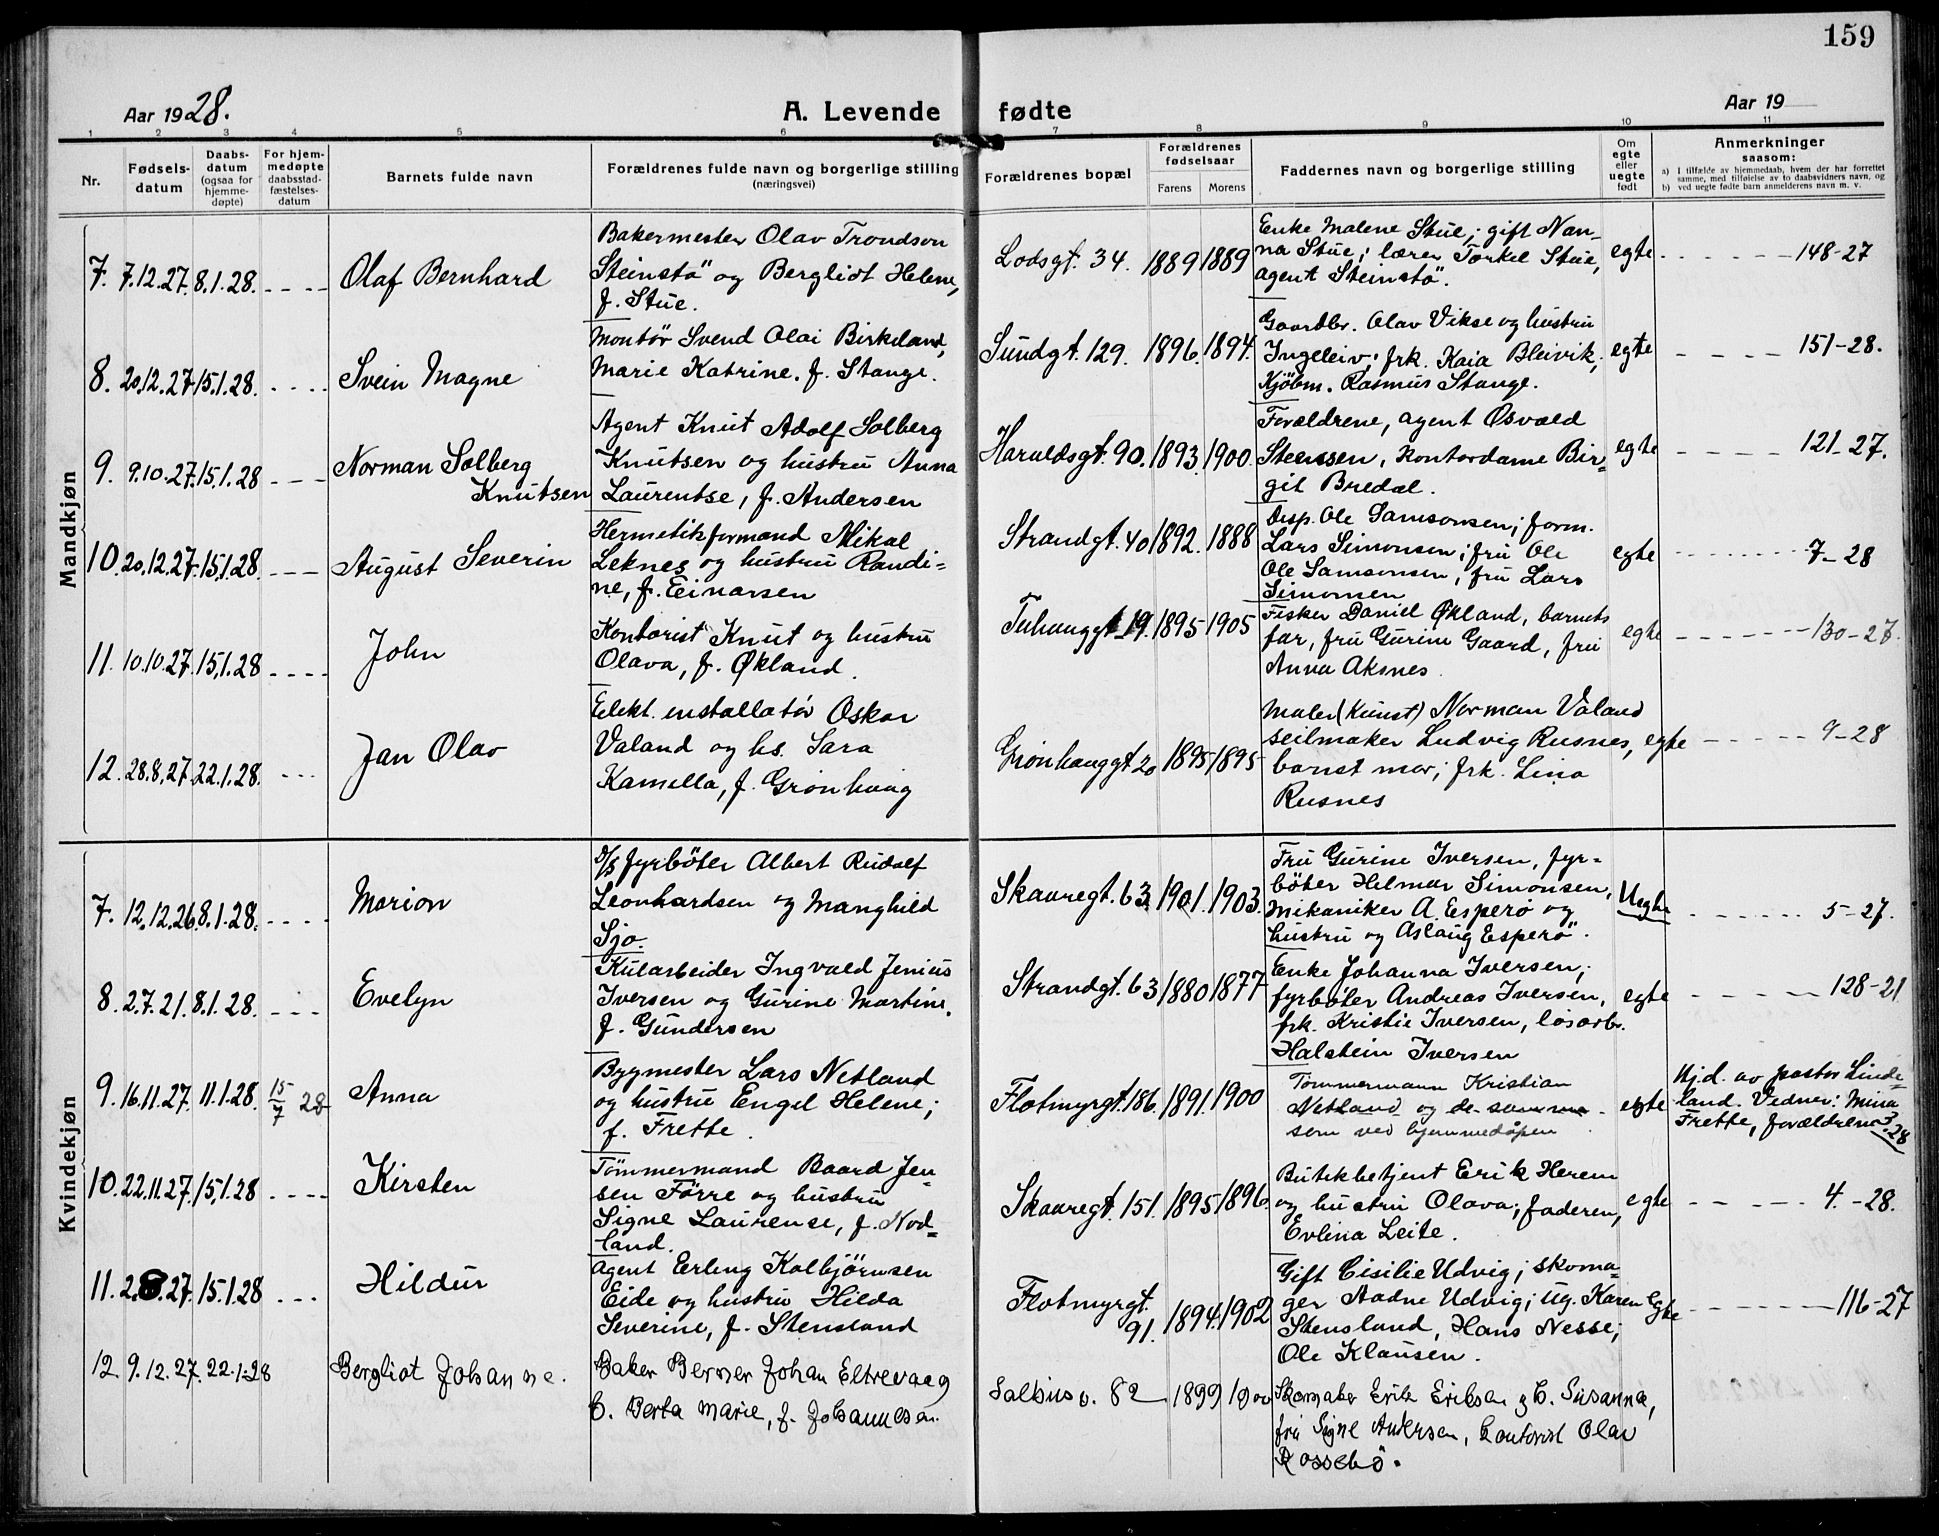 159
Aar 1928.
A. Levende fødte
Aar 19
1 2 3 4 5 6 7 8 9 10 11
Nr.
Fødsels-
datum
Daabs-
datum
(ogsaa for
hjemme-
døpte)
For hjem-
medøpte
daabsstad-
fæstelses-
datum
Barnets fulde navn
Forældrenes fulde navn og borgerlige stilling
(næringsvei)
Forældrenes bopæl
Forældrenes
fødselsaar
Farens Morens
Faddernes navn og borgerlige stilling
Om
egte
eller
uegte
født
Anmerkninger
saasom:
a) I tilfælde av hjemmedaab, hvem der har forrettet
samme, med tilføielse av to daabsvidners navn, og
b) ved uegte fødte barn anmelderens navn m. v.
Mandkjøn
7. 7.12.27. 8.1.28. Olaf Bernhard
Bakermester Olav Trondson
Steinstø og Bergliot Helene,
f. Stue.
Lodsgt. 34. 1889 1889
Enke Malene Stue; gift Nan-
na Stue; lærer Torkel Stue,
agent Steinstø.
egte 148-27
8. 20.12.27 15.1.28. Svein Magne
Montør Svend Olai Birkeland,
Marie Katrine. f. Stange.
Sundgt. 129. 1896. 1894.
Gaardbr. Olav Vikse og hustru
Ingeleiv; frk. Kaia Bleivik,
Kjøbm. Rasmus Stange.
egte 151-28.
9. 9.10.27. 15.1.28 Norman Solberg
Knutsen
Agent Knut Adolf Solberg
Knutsen og hustru Anna
Laurentse, f. Andersen
Haraldsgt. 90. 1893. 1900.
Forældrene, agent Osvald
Steensen, kontordame Bir-
git Bredal.
egte 121-27.
10. 20.12.27. 15.1.28. August Severin
Hermetikformand Mikal
Leknes og hustru Randi-
ne, f. Einarsen
Strandgt. 40 1892. 1888
Desp. Ole Samsonsen; form.
Lars Simonsen; fru Ole
Ole Samsonsen, fru Lars
Simonsen
egte 7-28
11. 10.10.27. 15.1.28 John
Kontorist Knut og hustru
Olava, f. Økland.
Tuhauggt. 19. 1895 1905
Fisker Daniel Økland, barnets
far, fru Gurine Gaard, fru
Anna Aksnes.
egte 130-27.
12. 28.8.27. 22.1.28. Jan Olav
Elekt. installatør Oskar
Valand og hs. Sara
Kamella, f. Grønhaug
Grønhauggt 20 1895 1895
Maler (Kunst) Norman Valand
seilmaker Ludvig Rusnes,
barnst mor; frk. Lina
Rusnes
egte 9-28
Kvindekjøn
7. 12.12.26. 8.1.28. Marion
D/S fyrbøter Albert Rudolf
Leonhardsen og Manghild
Sjo.
Skaaregt. 63 1901. 1903.
Fru Gurine Iversen, fyr-
bøter Helmar Simonsen,
Mikaniker A. Esperø og
hustru og Aslaug Esperø.
Uegte 5-27.
8. 2.7.21. 8.1.28. Evelyn
Kularbeider Ingvald Jenius
Iversen og Gurine Martine.
f. Gundersen
Strandgt. 63 1880 1877
Enke Johanna Iversen;
fyrbøter Andreas Iversen,
frk. Kristie Iversen, løsarb.
Halstein Iversen
egte 128-21
9. 16.11.27. 11.1.28. 15/7 28 Anna
Bygmester Lars Netland
og hustru Engel Helene;
f. Frette.
Flotmyrgt. 186. 1891. 1900
Tømmermann Kristian
Netland og de samme
som ved hjemmedåpen.
egte
Hj.d. av pastor Linde-
land. Vedner: Mina
Frette, forældrene 3-28
10. 22.11.27. 15.1.28 Kirsten
Tømmermand Baard Jen-
sen Førre og hustru
Signe Laurense, f. Nod-
land.
Skaaregt. 151. 1895 1896.
Butikbetjent Erik Herem
og hustru Olava; faderen,
Evlina Leite.
egte 4.-28.
11. 2.8.27. 15.1.28 Hildur
Agent Erling Kolbjørnsen
Eide og hustru Hilda
Severine, f. Stensland
Flotmyrgt.
91. 1894. 1902
Gift Cisilie Udvig; skoma-
ger Aadne Udvig; ug. Karen
Stensland, Hans Nesse;
Ole Klausen.
Egte 116-27
12. 9.12.27. 22.1-28 Bergliot Johanne.
Baker Berner Johan Eltrevaag
h. Berta Marie, f. Johannesen.
Salhusv. 82 1899 1900
Skomaker Erik Eriksen og h. Susanna,
fru Signe Andersen, kontorist Olav
Rossebø.